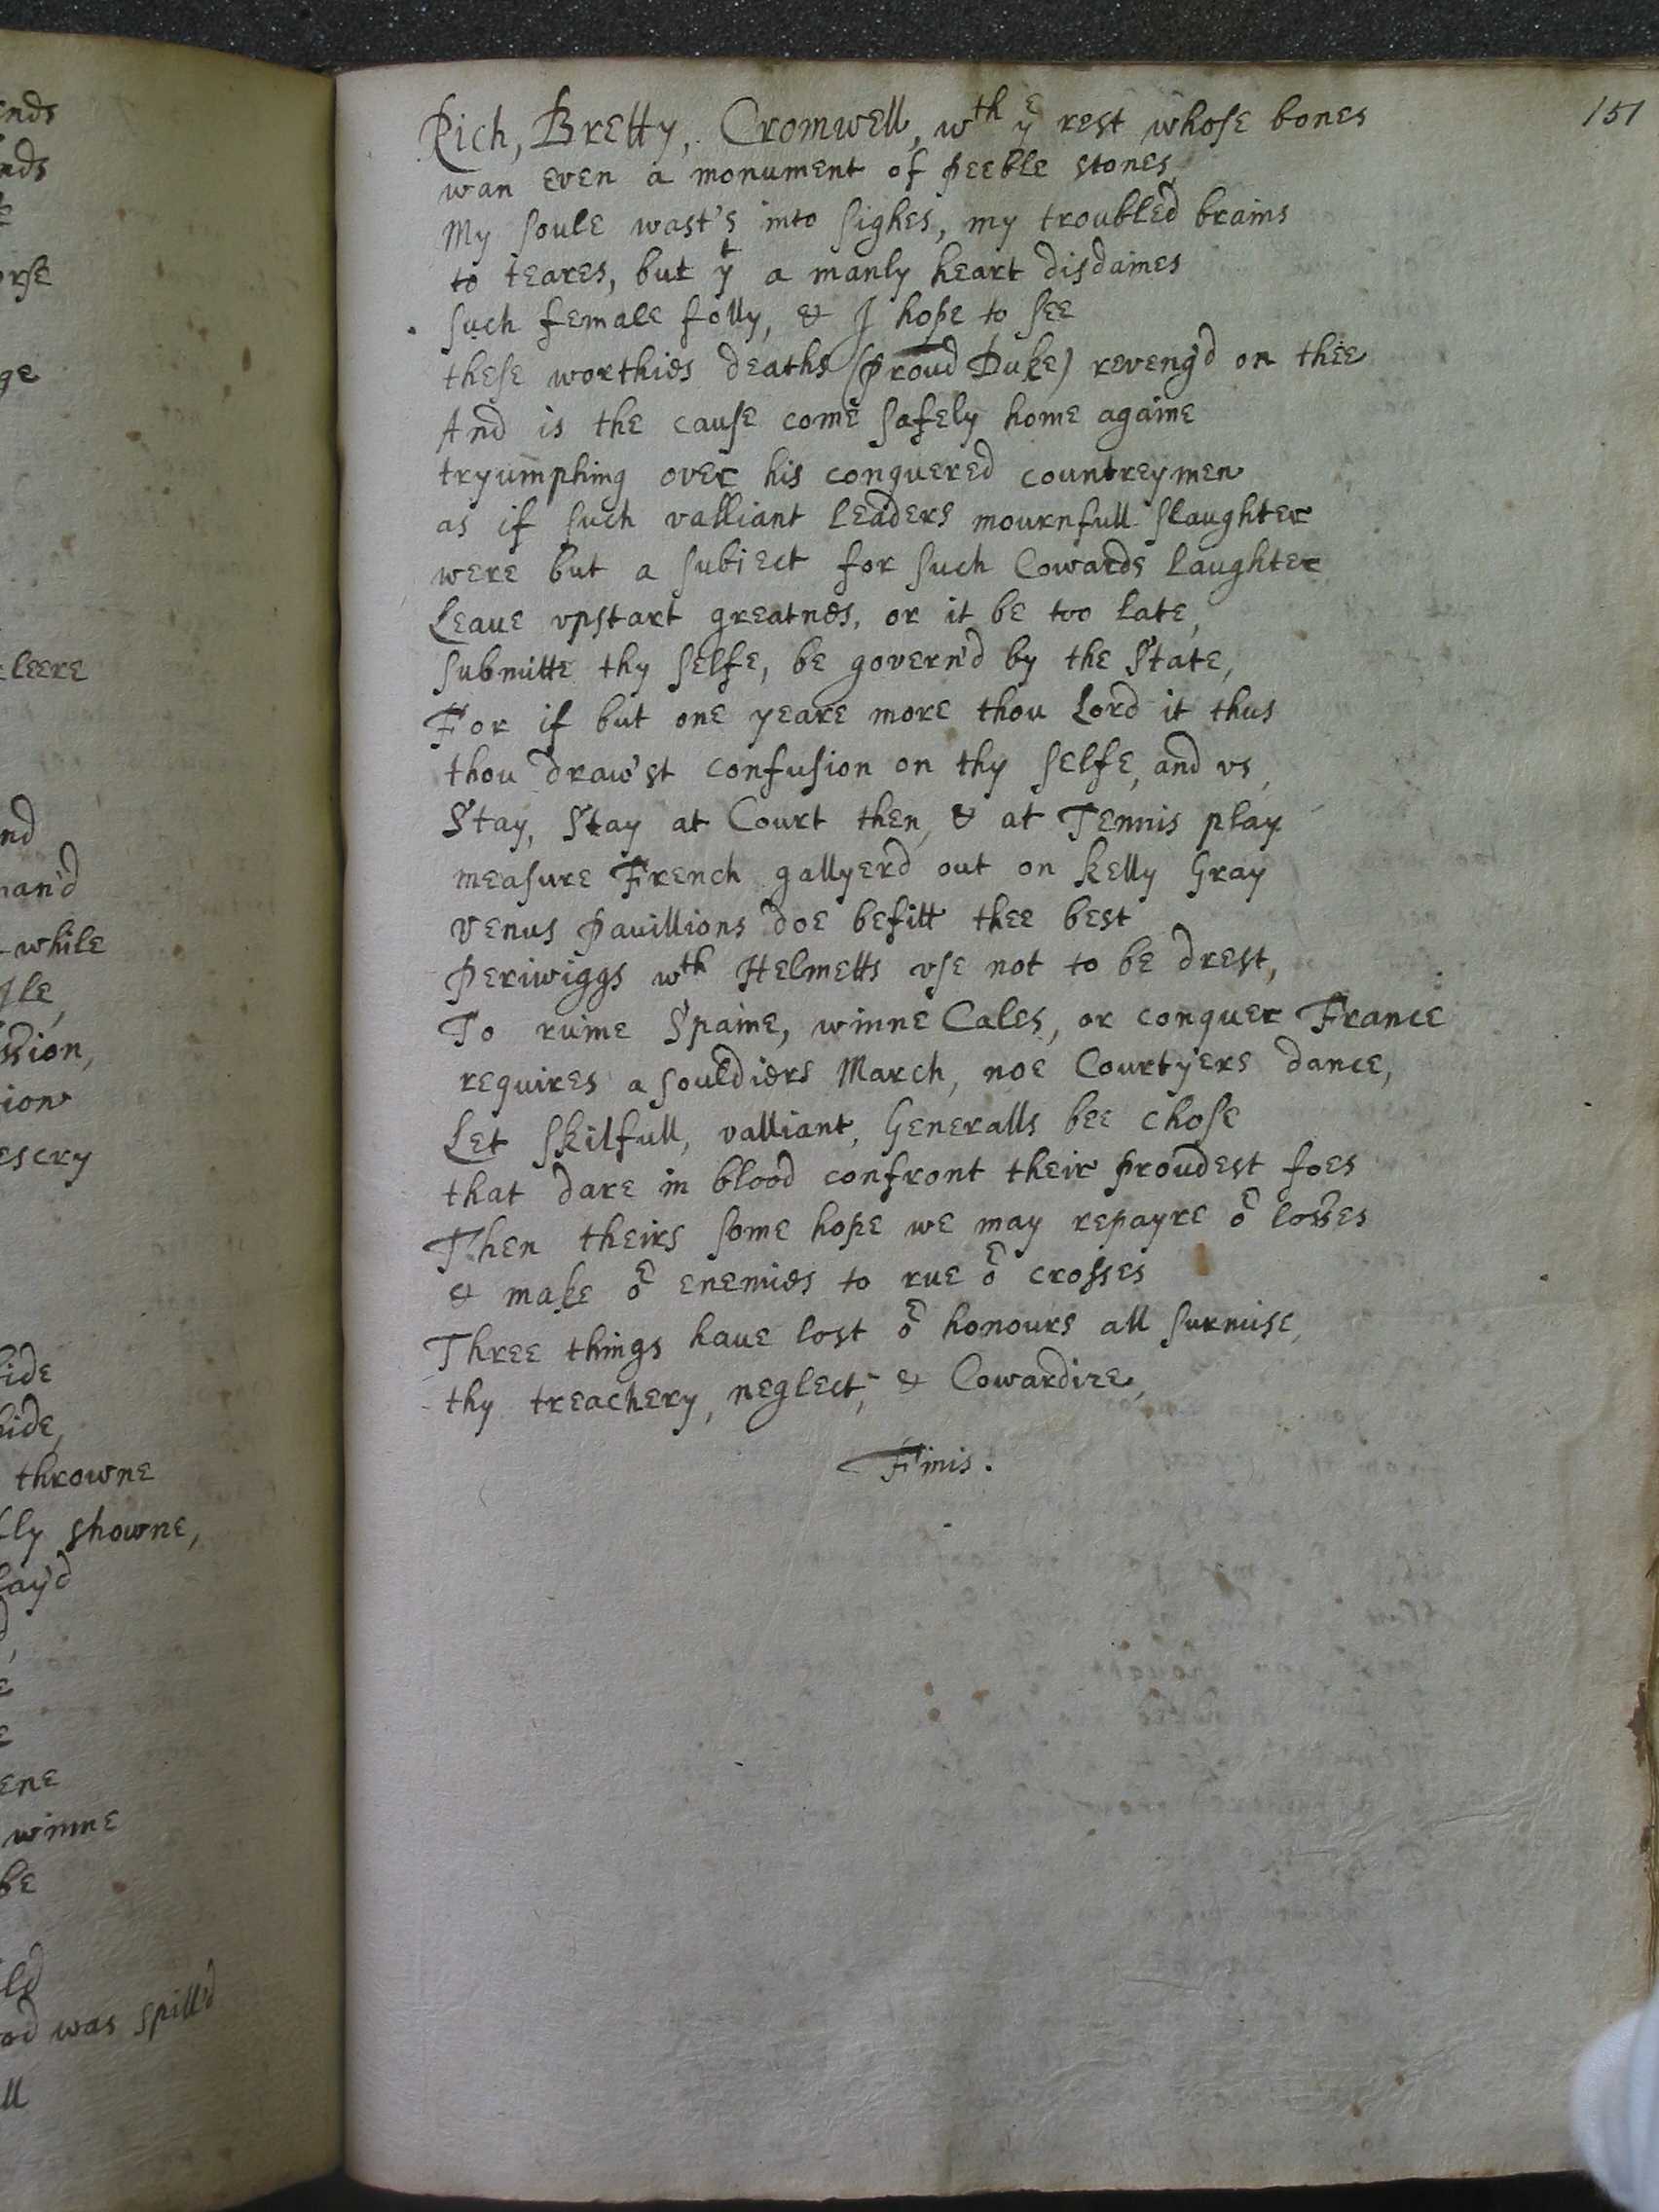 151
Rich, Bretty, Cromwell, wth ye rest whose bones
wan even a monument of peeble stones,
My soule wast's into sighes, my troubled brains
to teares, but yt a manly heart disdaines
such female folly, & I hope to see
these worthies deaths (proud Duke) reveng'd on thee
And is the cause come safely home againe
tryumphing over his conquered countreymen
as if such valliant leaders mournfull slaughter
were but a subiect for such Cowards laughter
Leaue vpstart greatnes, or it be too late,
submitte thy selfe, be govern'd by the State,
For if but one yeare more thou Lord it thus
thou draw'st confusion on thy selfe, and vs,
Stay, Stay at Court then, & at Tennis play
measure French gallyerd out on kelly Gray
Venus Pauillions doe befitt thee best
Periwiggs wth Helmetts vse not to be drest,
To ruine Spaine, winne Cales, or conquer France
requires a souldiers March, noe Courtyers dance,
Let skilfull, valliant, Generalls bee chose
that dare in blood confront their proudest foes
Then theirs some hope we may repayre or losses
& make or enemies to rue or crosses
Three things haue lost or honours all surmise,
thy treachery, neglect, & Cowardize,
Finis.
nds
nds
orse
ge
leere
nd
man'd
while
Ile,
ssion,
ion
escry
side
hide,
throwne
lly showne,
lay'd
ene
winne
be
ld
od was spill'd
ll